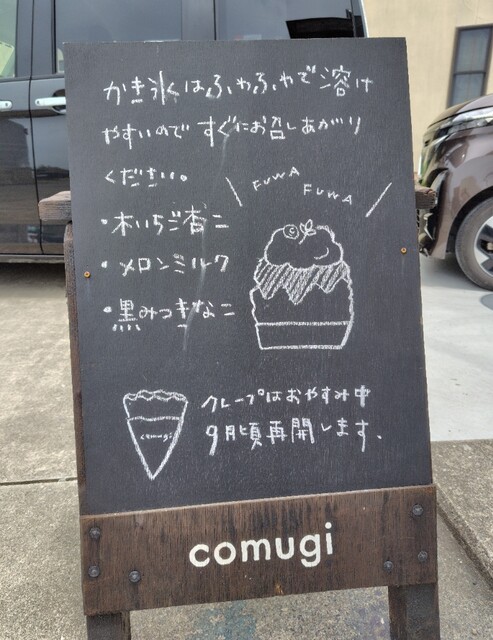 かき氷はふわふわで溶け
やすいので すぐにお召しあがり
ください。
FUWA
FUWA
・木いちご杏ニ
・メロンミルク
・黒みつきなこ
comugi
クレープはおやすみ中
9月頃再開します、
comugi